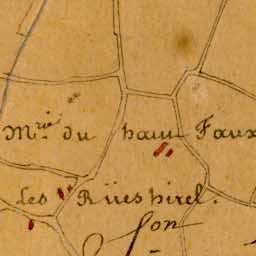 M.rie du haut Faux
Les Rües pirel.
son